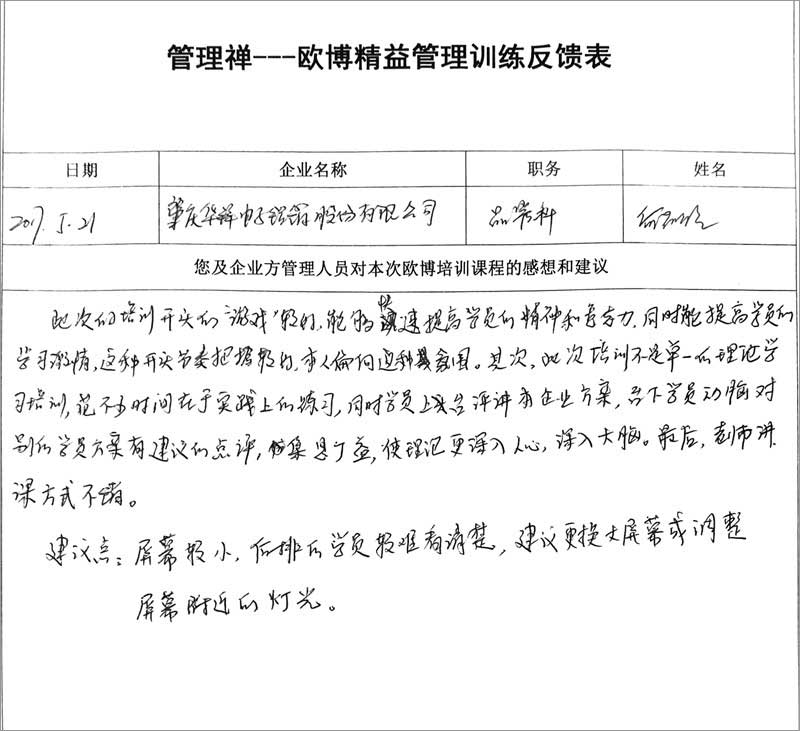 管理禅---欧博精益管理训练反馈表
日期 企业名称 职务 姓名
2017.5.21 肇庆华锋电子铝箔股份有限公司 品管科
您及企业方管理人员对本次欧博培训课程的感想和建议
此次的培训开头的“游戏”较好,能够快速提高学员的精神和专注力,同时能提高学员的
学习激情,这种开头节奏把握较好,本人偏向这种氛围。其次,此次培训不是单一的理论学
习培训,花不少时间在于实践上的练习,同时学员上台评讲本企业方案,台下学员动脑对
别的学员方案有建议的点评,集思广益,使理论更深入人心,深入大脑。最后,老师讲
课方式不错。
建议点:屏幕较小,后排的学员较难看清楚,建议更换大屏幕或调整
屏幕附近的灯光。